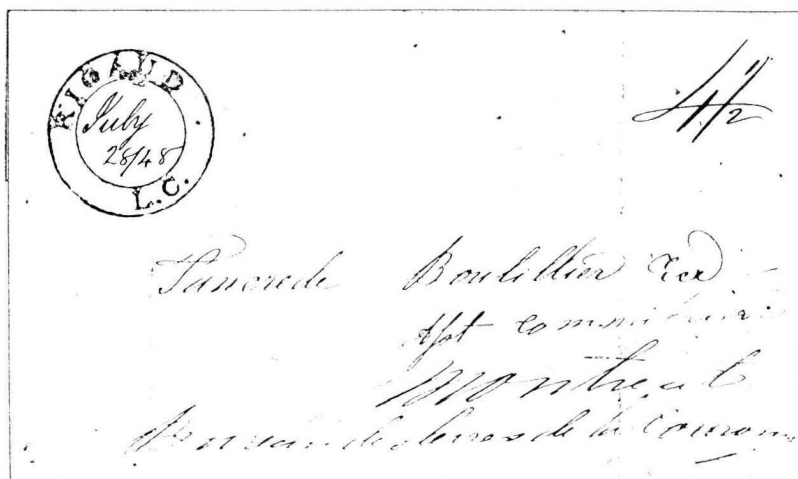 RIGAUD
July
28/48
L.C.
4 1/2
Tancrede Boutillier
Asst commissaire
Montreal
Bureau des terres de la Couronne